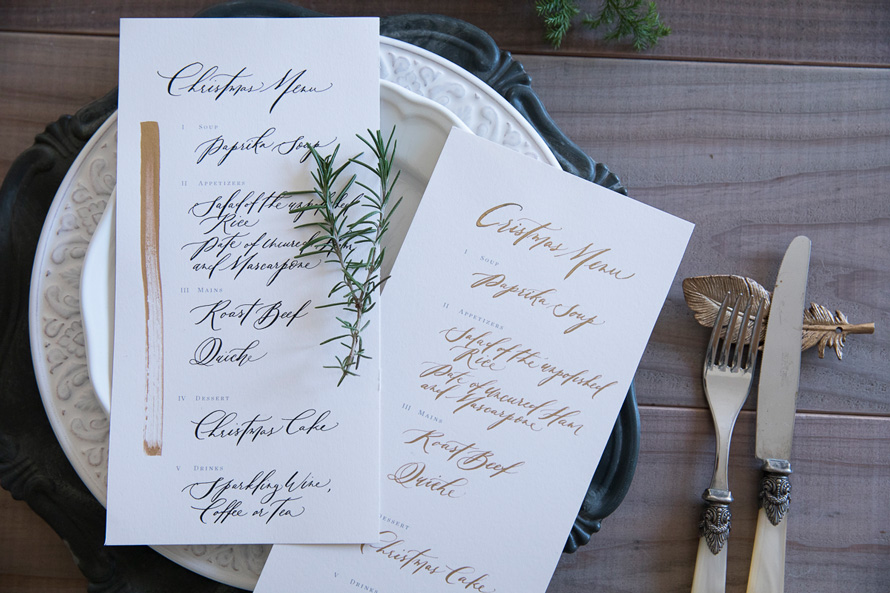 Christmas Menu
I Soup
Paprika Soup
II Appetizers
Salad of the unpolished
Rice
Pate of Uncured Ham
and Mascarpone
III Mains
Roast Beef
Quiche
IV Dessert
Christmas Cake
V Drinks
Sparkling Wine,
Coffee or Tea
Cristmas Menu
I Soup
Paprika Soup
II Appetizers
Salad of the unpolished
Rice
Pate of uncured Ham
and Mascarpone
III Mains
Roast Beef
Quiche
Dessert
Christmas Cake
V Drinks